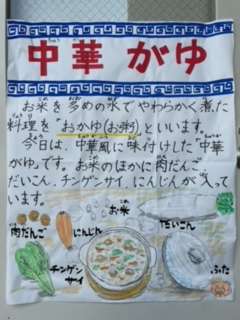 中華がゆ
お米を多めの水でやわらかく煮た
料理を"おかゆ(お粥)といいます。
今日は、中華風に味付けした"中華
がゆ"です。お米のほかに肉だんご
だいこん、チンゲンサイ、にんじんが入って
います。
お米
だいこん
肉だんご
にんじん
チンゲン
サイ
ふた